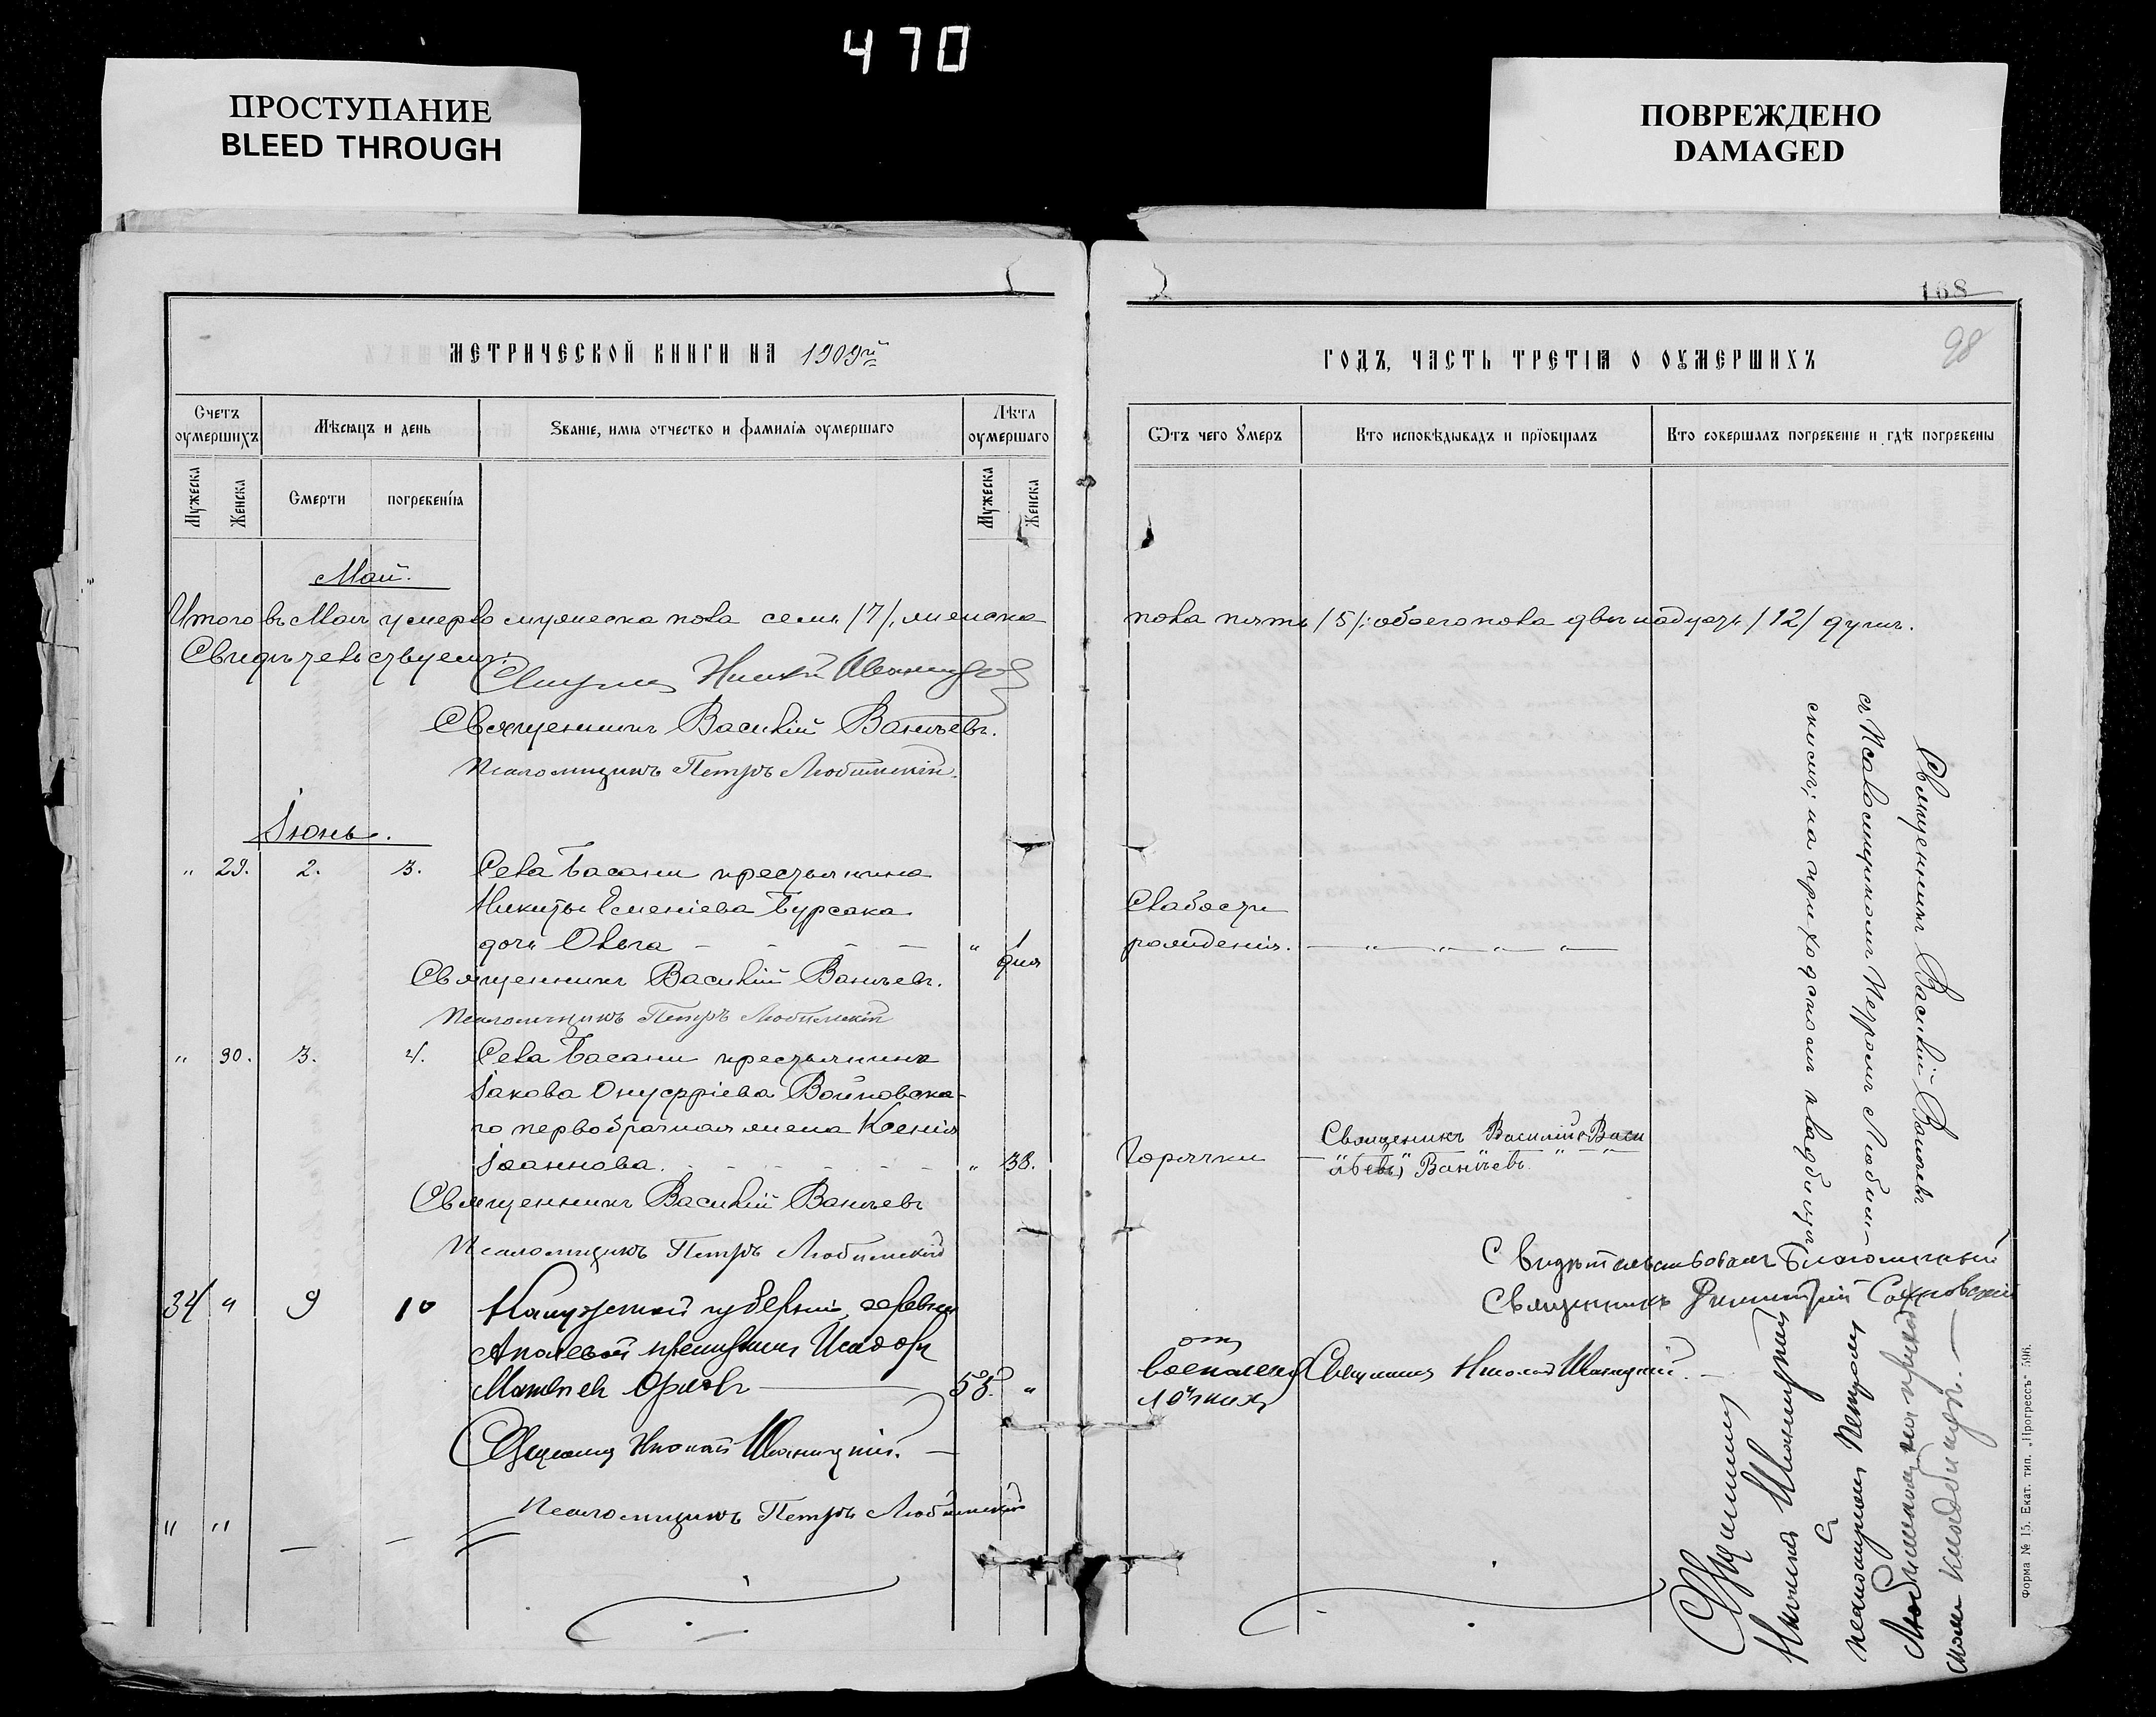 470
ПРОСТУПАНИЕ
BLEED THROUGH
ПОВРЕЖДЕНО
DAMAGED
МЕТРИЧЕСКОЙ КНИГИ НА 1909й
Счетъ оумершихъ
Мѣсяцъ и день
Званіе, имя отчество и фамилія оумершаго
Лѣта оумершаго
Мужеска
Женска
Смерти
погребенія
Мужеска
Женска
Май.
Итого въ Маѣ умерло мужеска пола семь /7/, женска
Свидѣтельствуемъ:
Священникъ Василій Ваničевъ.
Псаломщикъ Петръ Любимскій.
Іюнь.
" 29. 2. 3. Села Басани крестьянина
Никиты Бурсака
дочь Ольга " 1 дня
Священникъ Василій
Псаломщикъ Петръ Любимскій
" 30. 3. 4. Села Басани крестьянина
Іакова Онуфріева Войновска-
го первобрачная жена Ксенія
Іоаннова. " 38.
Священникъ Василій
Псаломщикъ Петръ Любимскій
34 " 9 10 Калужской губерніи, деревни
Исидоръ
Орловъ 55. "
Псаломщикъ Петръ Любимскій
" " — —
168
98
ГОДЪ, ЧАСТЬ ТРЕТІЯ О ОУМЕРШИХЪ
Ѿтъ чего Умеръ
Кто исповѣдывалъ и пріобщалъ
Кто совершалъ погребеніе и гдѣ погребены
пола пять /5/: обоего пола двѣнадцать /12/ душъ.
Слабости
рожденія. — " — " — " — " —
Горячки
Священикъ Василій
Священникъ Василій
съ Псаломщикомъ Петромъ Любим-
скимъ; на приходскомъ кладбищѣ
Свидѣтельствовалъ Благочинный
Священникъ Димитрій
отъ
воспаленія
легкихъ
Священникъ Николай
Священникъ
Николай
съ
псаломщикомъ Петромъ
Любимскимъ на приход
скомъ кладбищѣ. —
Форма № 15. Екат. тип. „Прогрессъ" 596.